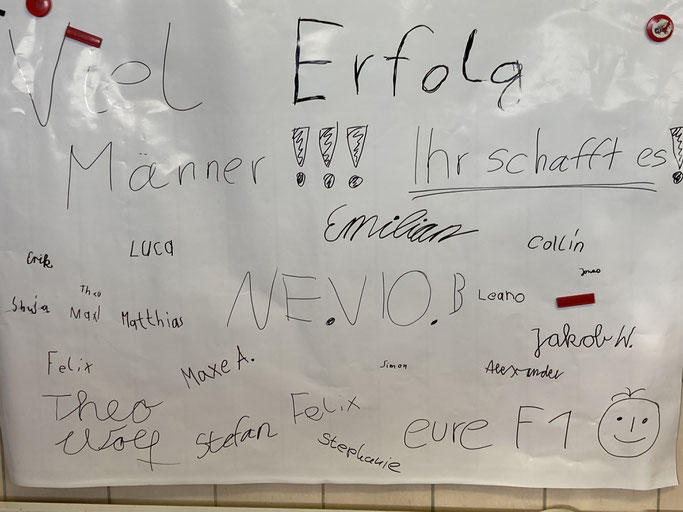 Viel Erfolg
Männer !!! Ihr schafft es!
Emilian
Luca
Collin
Erik
Jonas
Theo
NE.VIO.B
Leano
Shuja
Max
Matthias
Jakob W.
Felix
Maxe A.
Simon
Alexander
Theo
Wolf
Felix
Stefan
Stephanie
eure F1